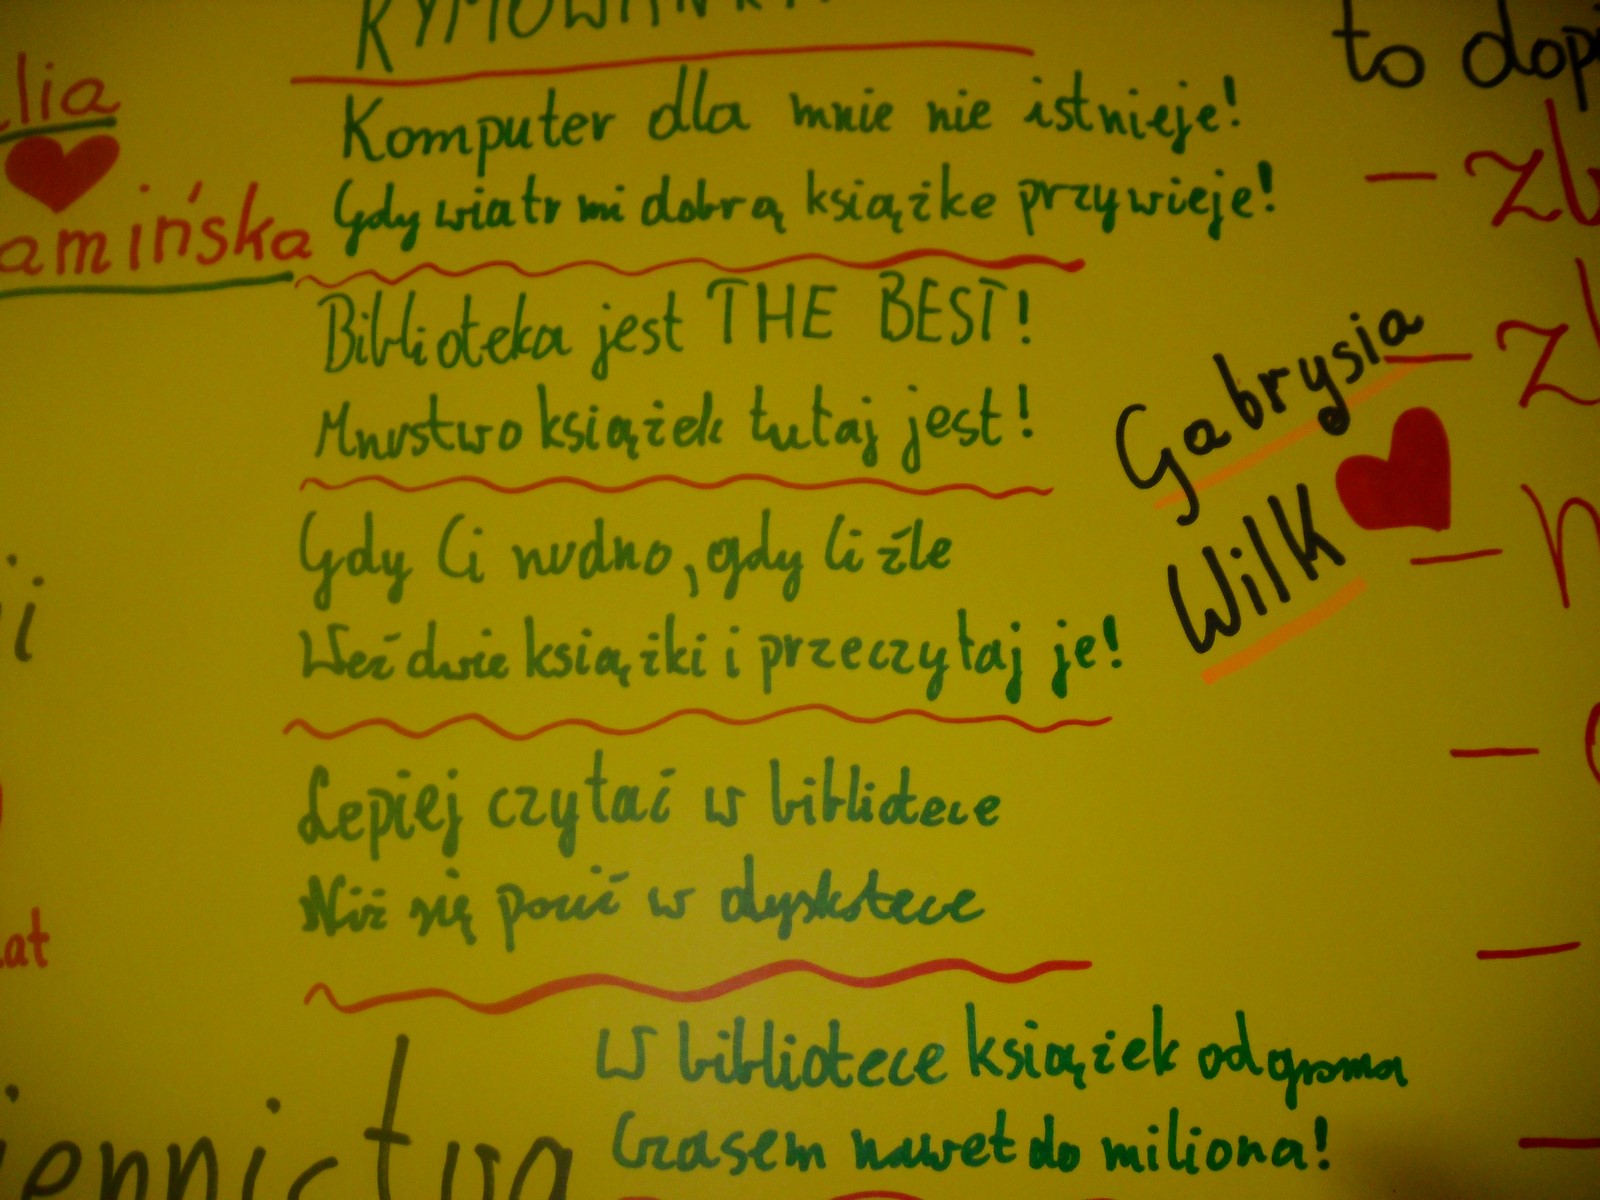 RYMOWANKA
Komputer dla mnie nie istnieje!
Gdy wiatr mi dobrą książke przywieje!
Biblioteka jest THE BEST!
Mnustwo książek tutaj jest!
Gdy Ci nudno, gdy Ci źle
Weź dwie książki i przeczytaj je!
Lepiej czytać w bibliotece
Niż się pocić w dyskotece
W bibliotece książek od groma
Czasem nawet do miliona!
lia
amińska
Gabrysia
Wilk
to dop
at
iennictwa